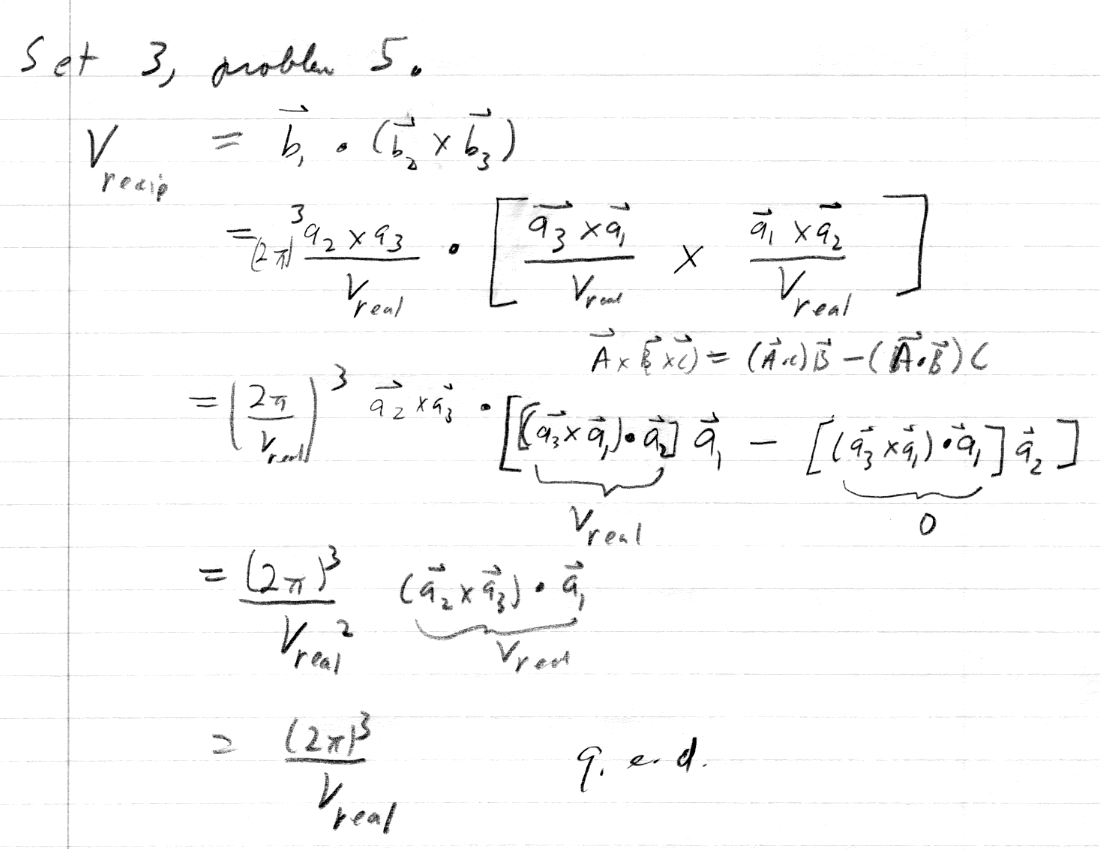 Set 3, problem 5.
V_recip = \vec{b}_1 · (\vec{b}_2 × \vec{b}_3)
= (2π)^3 \frac{a_2 × a_3}{V_real} · [ \frac{\vec{a_3} × \vec{a}_1}{V_real} × \frac{\vec{a}_1 × \vec{a}_2}{V_real} ]
\vec{A} × (\vec{B} × \vec{C}) = (\vec{A}·c)\vec{B} − (\vec{A}·\vec{B}) C
= (\frac{2π}{V_real})^3 \vec{a_2} × \vec{a}_3 · [[(\vec{a_3} × \vec{a}_1) · \vec{a}_2] \vec{a}_1 − [(\vec{a_3} × \vec{a}_1) · \vec{a}_1] \vec{a}_2 ]
V_real 0
= \frac{(2π)^3}{V_real^2} (\vec{a}_2 × \vec{a}_3) · \vec{a}_1
V_real
= \frac{(2π)^3}{V_real} q. e. d.